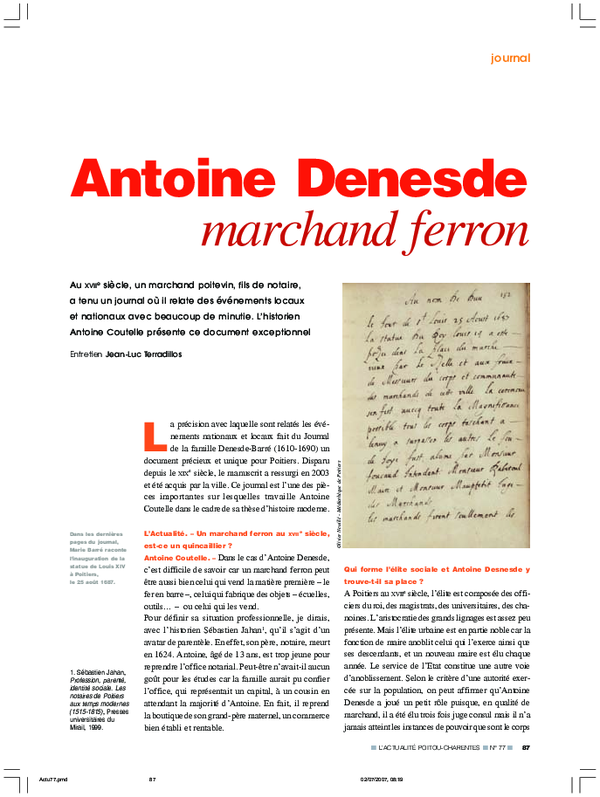 journal
Antoine Denesde
marchand ferron
Au XVIIe siècle, un marchand poitevin, fils de notaire,
a tenu un journal où il relate des événements locaux
et nationaux avec beaucoup de minutie. L'historien
Antoine Coutelle présente ce document exceptionnel
Entretien Jean-Luc Terradillos
La précision avec laquelle sont relatés les évé-
nements nationaux et locaux fait du Journal
de la famille Denesde-Barré (1610-1690) un
document précieux et unique pour Poitiers. Disparu
depuis le XIXe siècle, le manuscrit a ressurgi en 2003
et été acquis par la ville. Ce journal est l'une des piè-
ces importantes sur lesquelles travaille Antoine
Coutelle dans le cadre de sa thèse d'histoire moderne.
L'Actualité. – Un marchand ferron au XVIIe siècle,
est-ce un quincaillier ?
Antoine Coutelle. – Dans le cas d'Antoine Denesde,
c'est difficile de savoir car un marchand ferron peut
être aussi bien celui qui vend la matière première – le
fer en barre –, celui qui fabrique des objets – écuelles,
outils… – ou celui qui les vend.
Pour définir sa situation professionnelle, je dirais,
avec l'historien Sébastien Jahan¹, qu'il s'agit d'un
avatar de parentèle. En effet, son père, notaire, meurt
en 1624. Antoine, âgé de 13 ans, est trop jeune pour
reprendre l'office notarial. Peut-être n'avait-il aucun
goût pour les études car la famille aurait pu confier
l'office, qui représentait un capital, à un cousin en
attendant la majorité d'Antoine. En fait, il reprend
la boutique de son grand-père maternel, un commerce
bien établi et rentable.
Dans les dernières
pages du journal,
Marie Barré raconte
l'inauguration de la
statue de Louis XIV
à Poitiers,
le 25 août 1687.
1. Sébastien Jahan,
Profession, parenté,
identité sociale. Les
notaires de Poitiers
aux temps modernes
(1515-1815), Presses
universitaires du
Mirail, 1999.
Olivier Neuillé - Médiathèque de Poitiers
152
le Jour de st Louis 25 Aoust 1687
la statue Du Roy Louis 14 a esté
posée dans la place du marché
de Messieurs du corps et communauté
des marchands de cette ville la ceremonie
sen fist avecq toute la Magnificence
possible tous les corps taschant a
lenvy a surpasser les autres le feu
de Joye fust alume par Monsieur
foucaud Intendant Monsieur Rabereuil
Maire et Monsieur Maupetit Juge
des Marchands
les marchands firent seullement les
Qui forme l'élite sociale et Antoine Desnesde y
trouve-t-il sa place ?
A Poitiers au XVIIe siècle, l'élite est composée des offi-
ciers du roi, des magistrats, des universitaires, des cha-
noines. L'aristocratie des grands lignages est assez peu
présente. Mais l'élite urbaine est en partie noble car la
fonction de maire anoblit celui qui l'exerce ainsi que
ses descendants, et un nouveau maire est élu chaque
année. Le service de l'Etat constitue une autre voie
d'anoblissement. Selon le critère d'une autorité exer-
cée sur la population, on peut affirmer qu'Antoine
Denesde a joué un petit rôle puisque, en qualité de
marchand, il a été élu trois fois juge consul mais il n'a
jamais atteint les instances de pouvoir que sont le corps
L'ACTUALITÉ POITOU-CHARENTES N° 77 87
Actu77.pmd 87 02/07/2007, 08:19